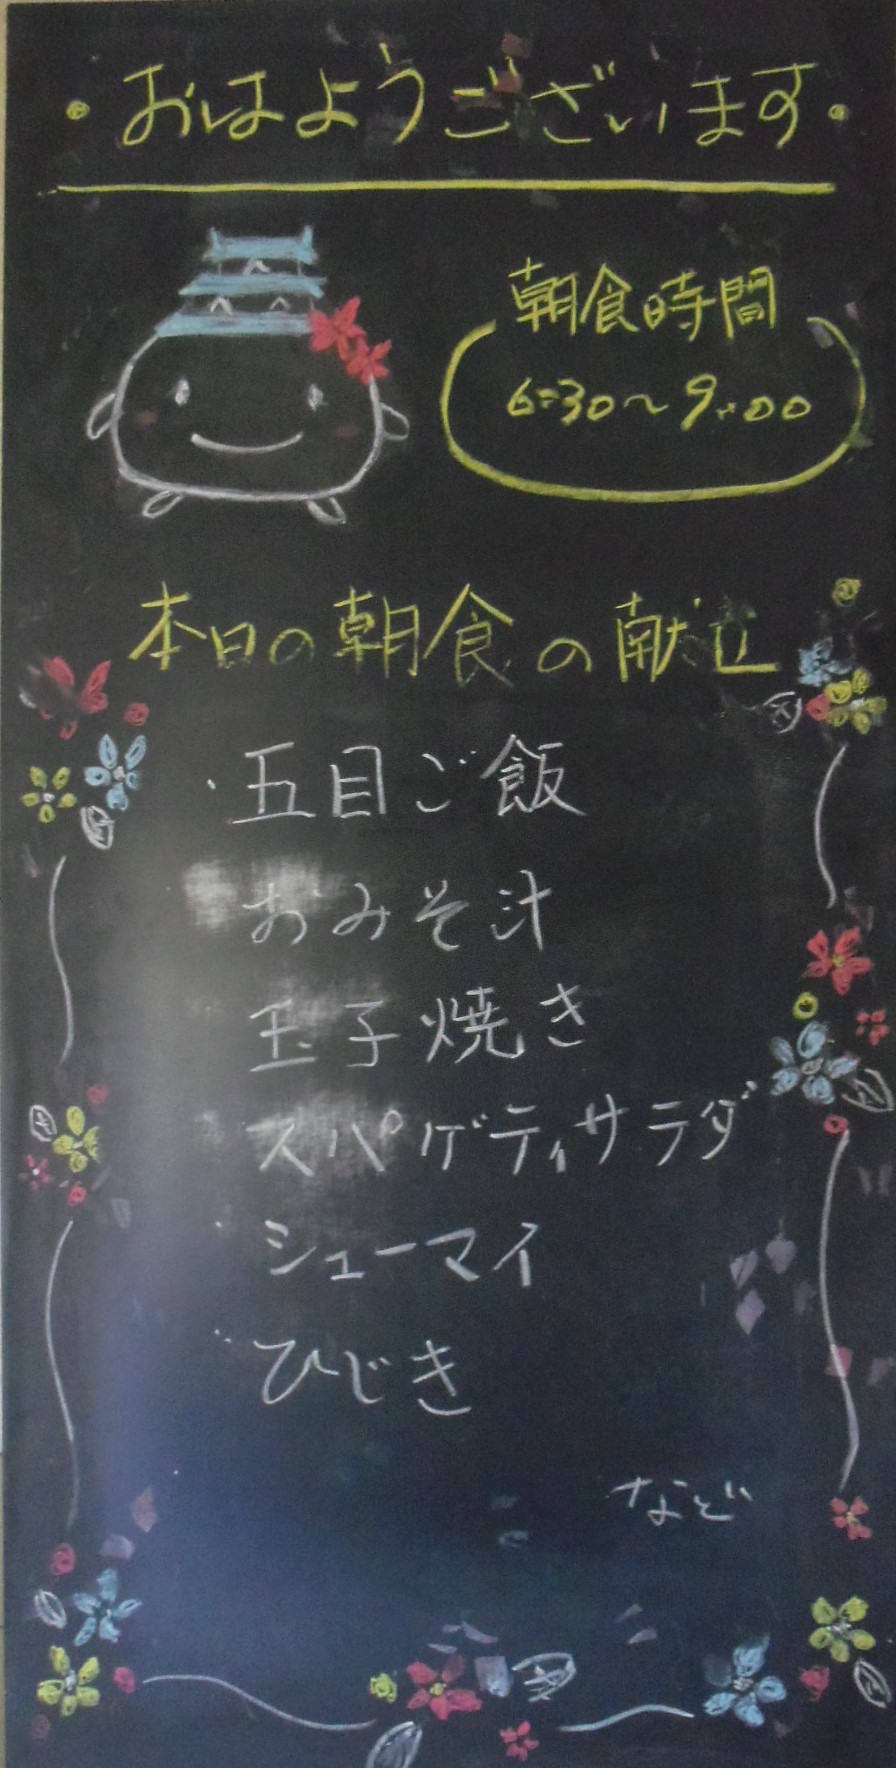 ・おはようございます・
朝食時間
6:30～9:00
本日の朝食の献立
・五目ご飯
おみそ汁
玉子焼き
スパゲティサラダ
シューマイ
ひじき
など